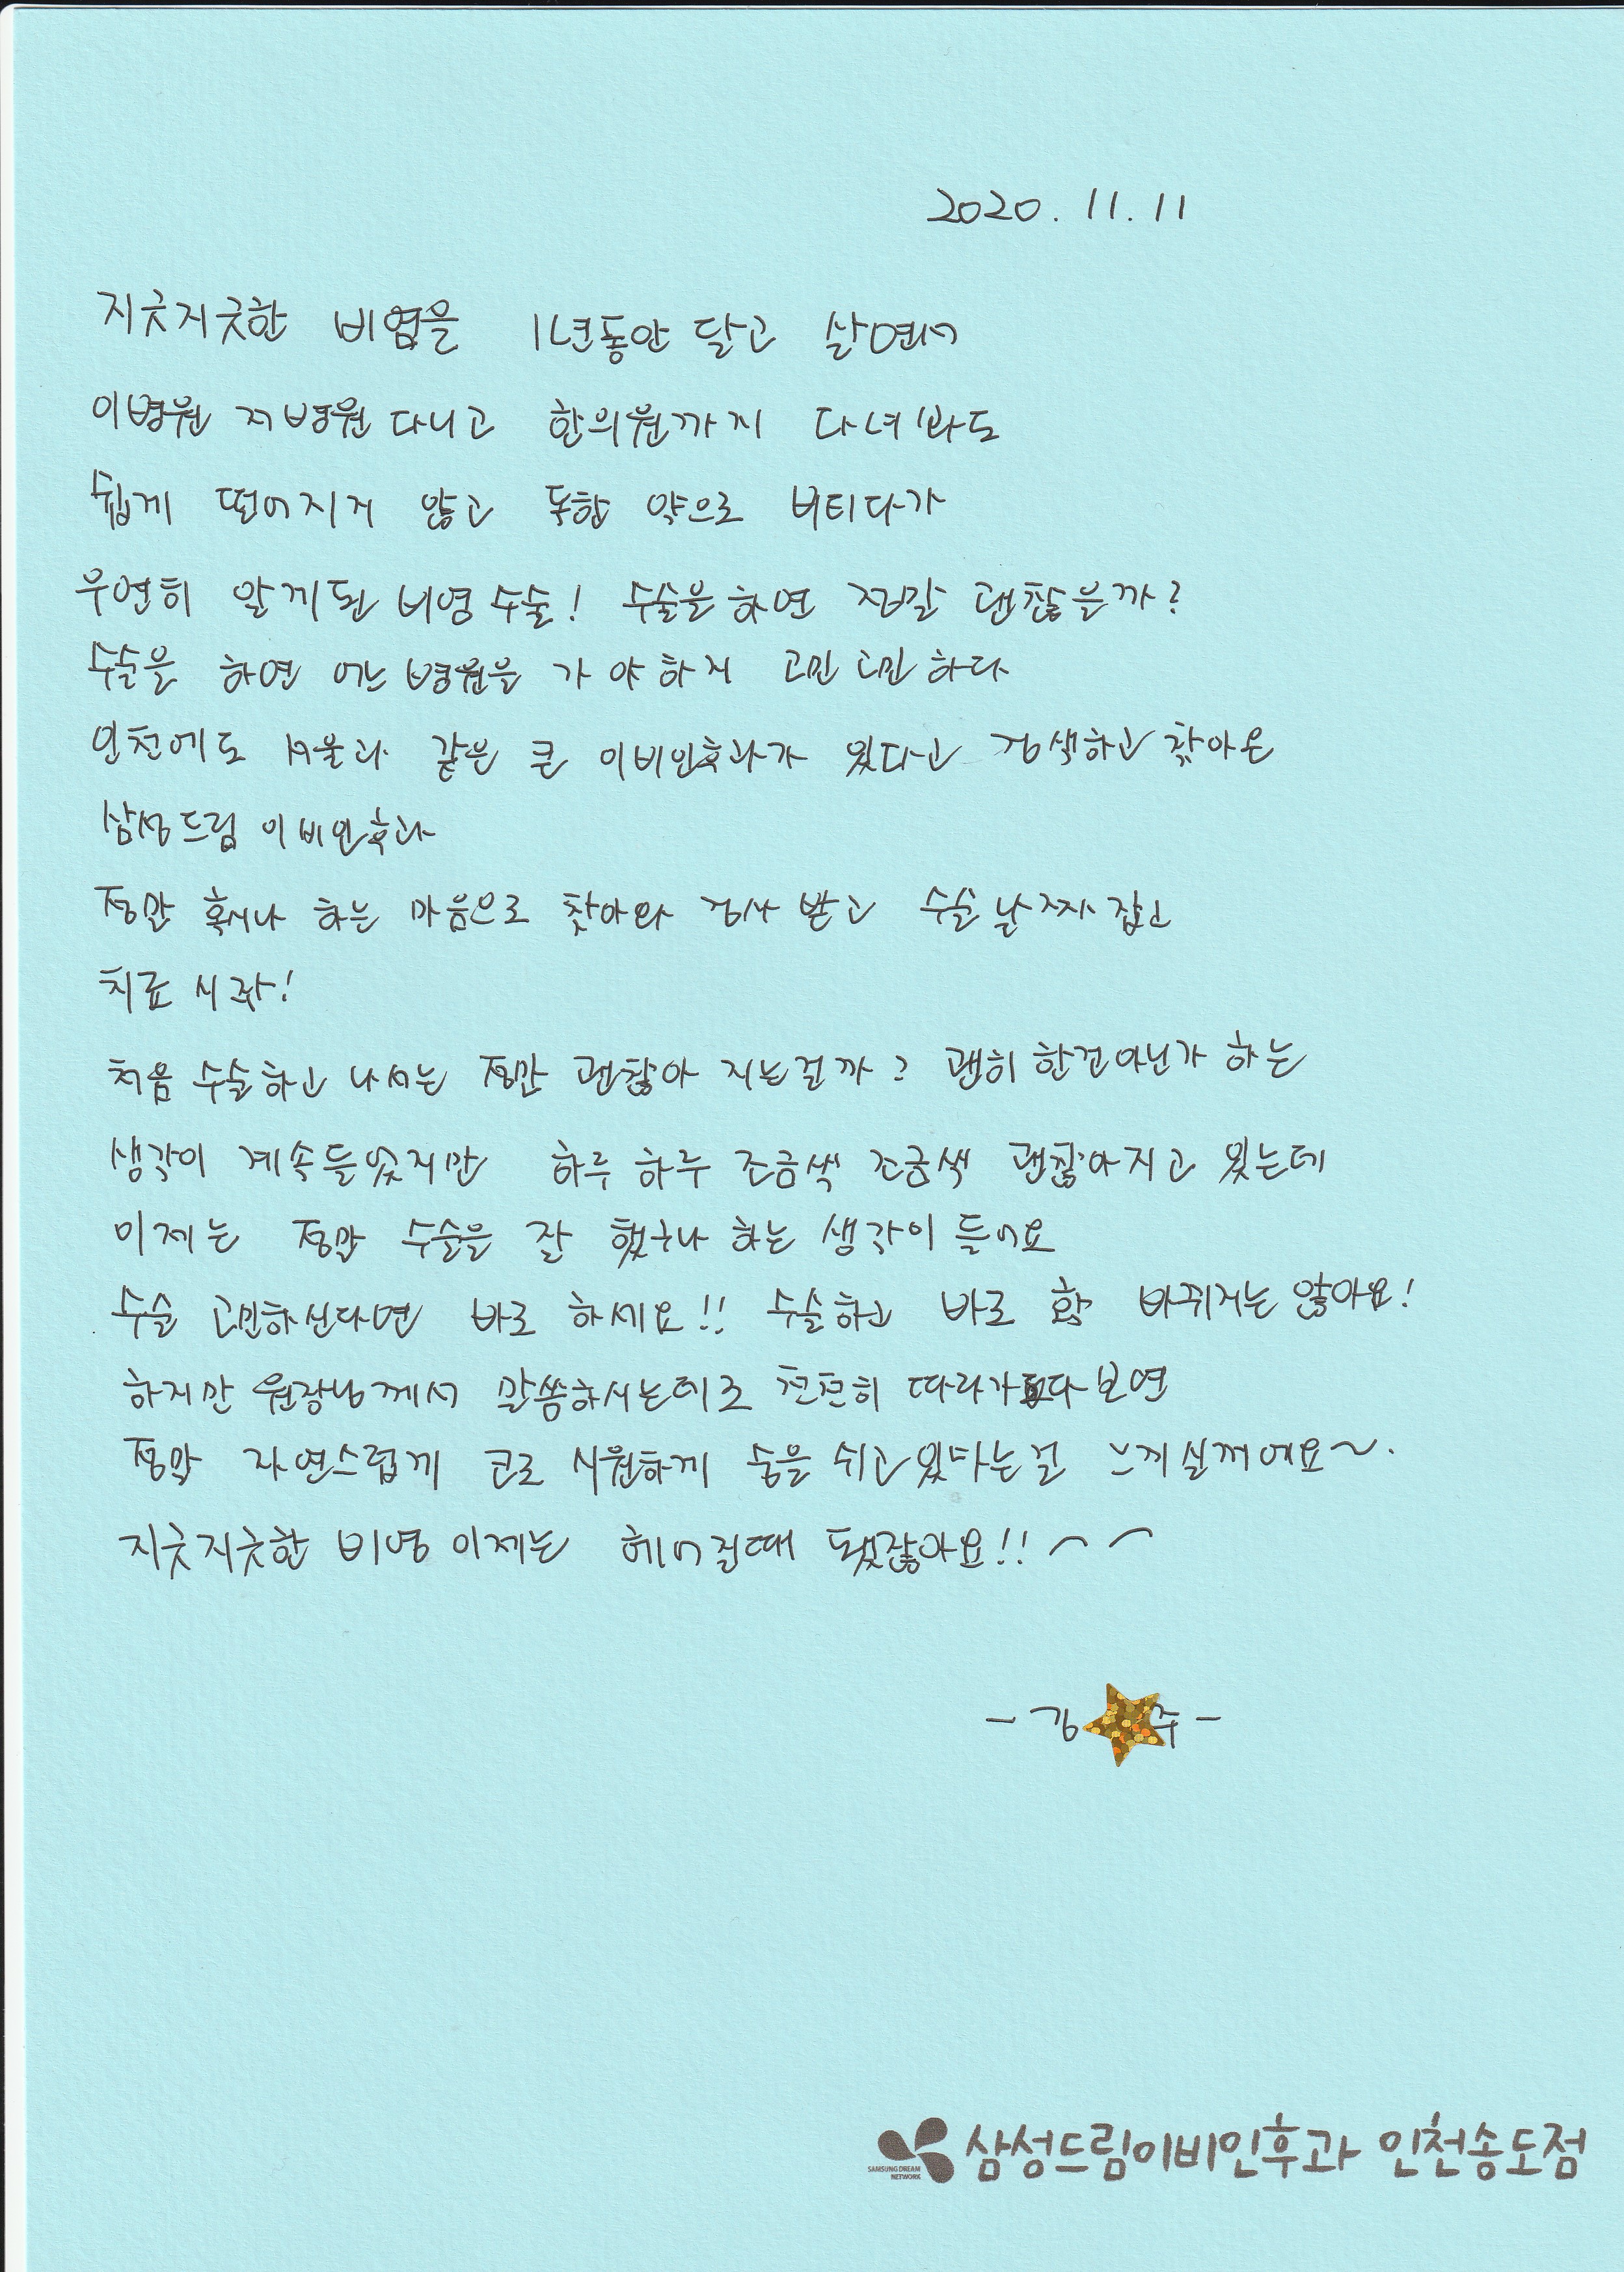 2020. 11. 11
지긋지긋한 비염을 1년동안 달고 살면서
이병원 저병원 다니고 한의원까지 다녀봐도
쉽게 떨어지지 않고 독한 약으로 버티다가
우연히 알게된 비염수술! 수술을하면 정말 괜찮을까?
수술을 하면 어느병원을 가야하지 고민고민하다
인천에도 서울과 같은 큰 이비인후과가 있다고 검색하고 찾아온
삼성드림 이비인후과
정말 혹시나 하는 마음으로 찾아와 검사받고 수술날짜잡고
치료시작!
처음 수술하고 나서는 정말 괜찮아 지는걸까? 괜히한건아닌가 하는
생각이 계속들었지만 하루하루 조금씩 조금씩 괜찮아지고 있는데
이제는 정말 수술을 잘 했구나 하는 생각이 들어요
수술 고민하신다면 바로 하세요!! 수술하고 바로 확 바뀌지는 않아요!
하지만 원장님께서 말씀하시는데로 천천히 따라가다보면
정말 자연스럽게 코로 시원하게 숨을 쉬고있다는걸 느끼실꺼에요~.
지긋지긋한 비염 이제는 헤어질때 됐잖아요!! ⌒⌒
- 김 주 -
삼성드림이비인후과 인천송도점
SAMSUNG DREAM
NETWORK